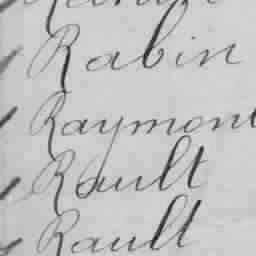 Rabin
Raymont
Rault
Rault